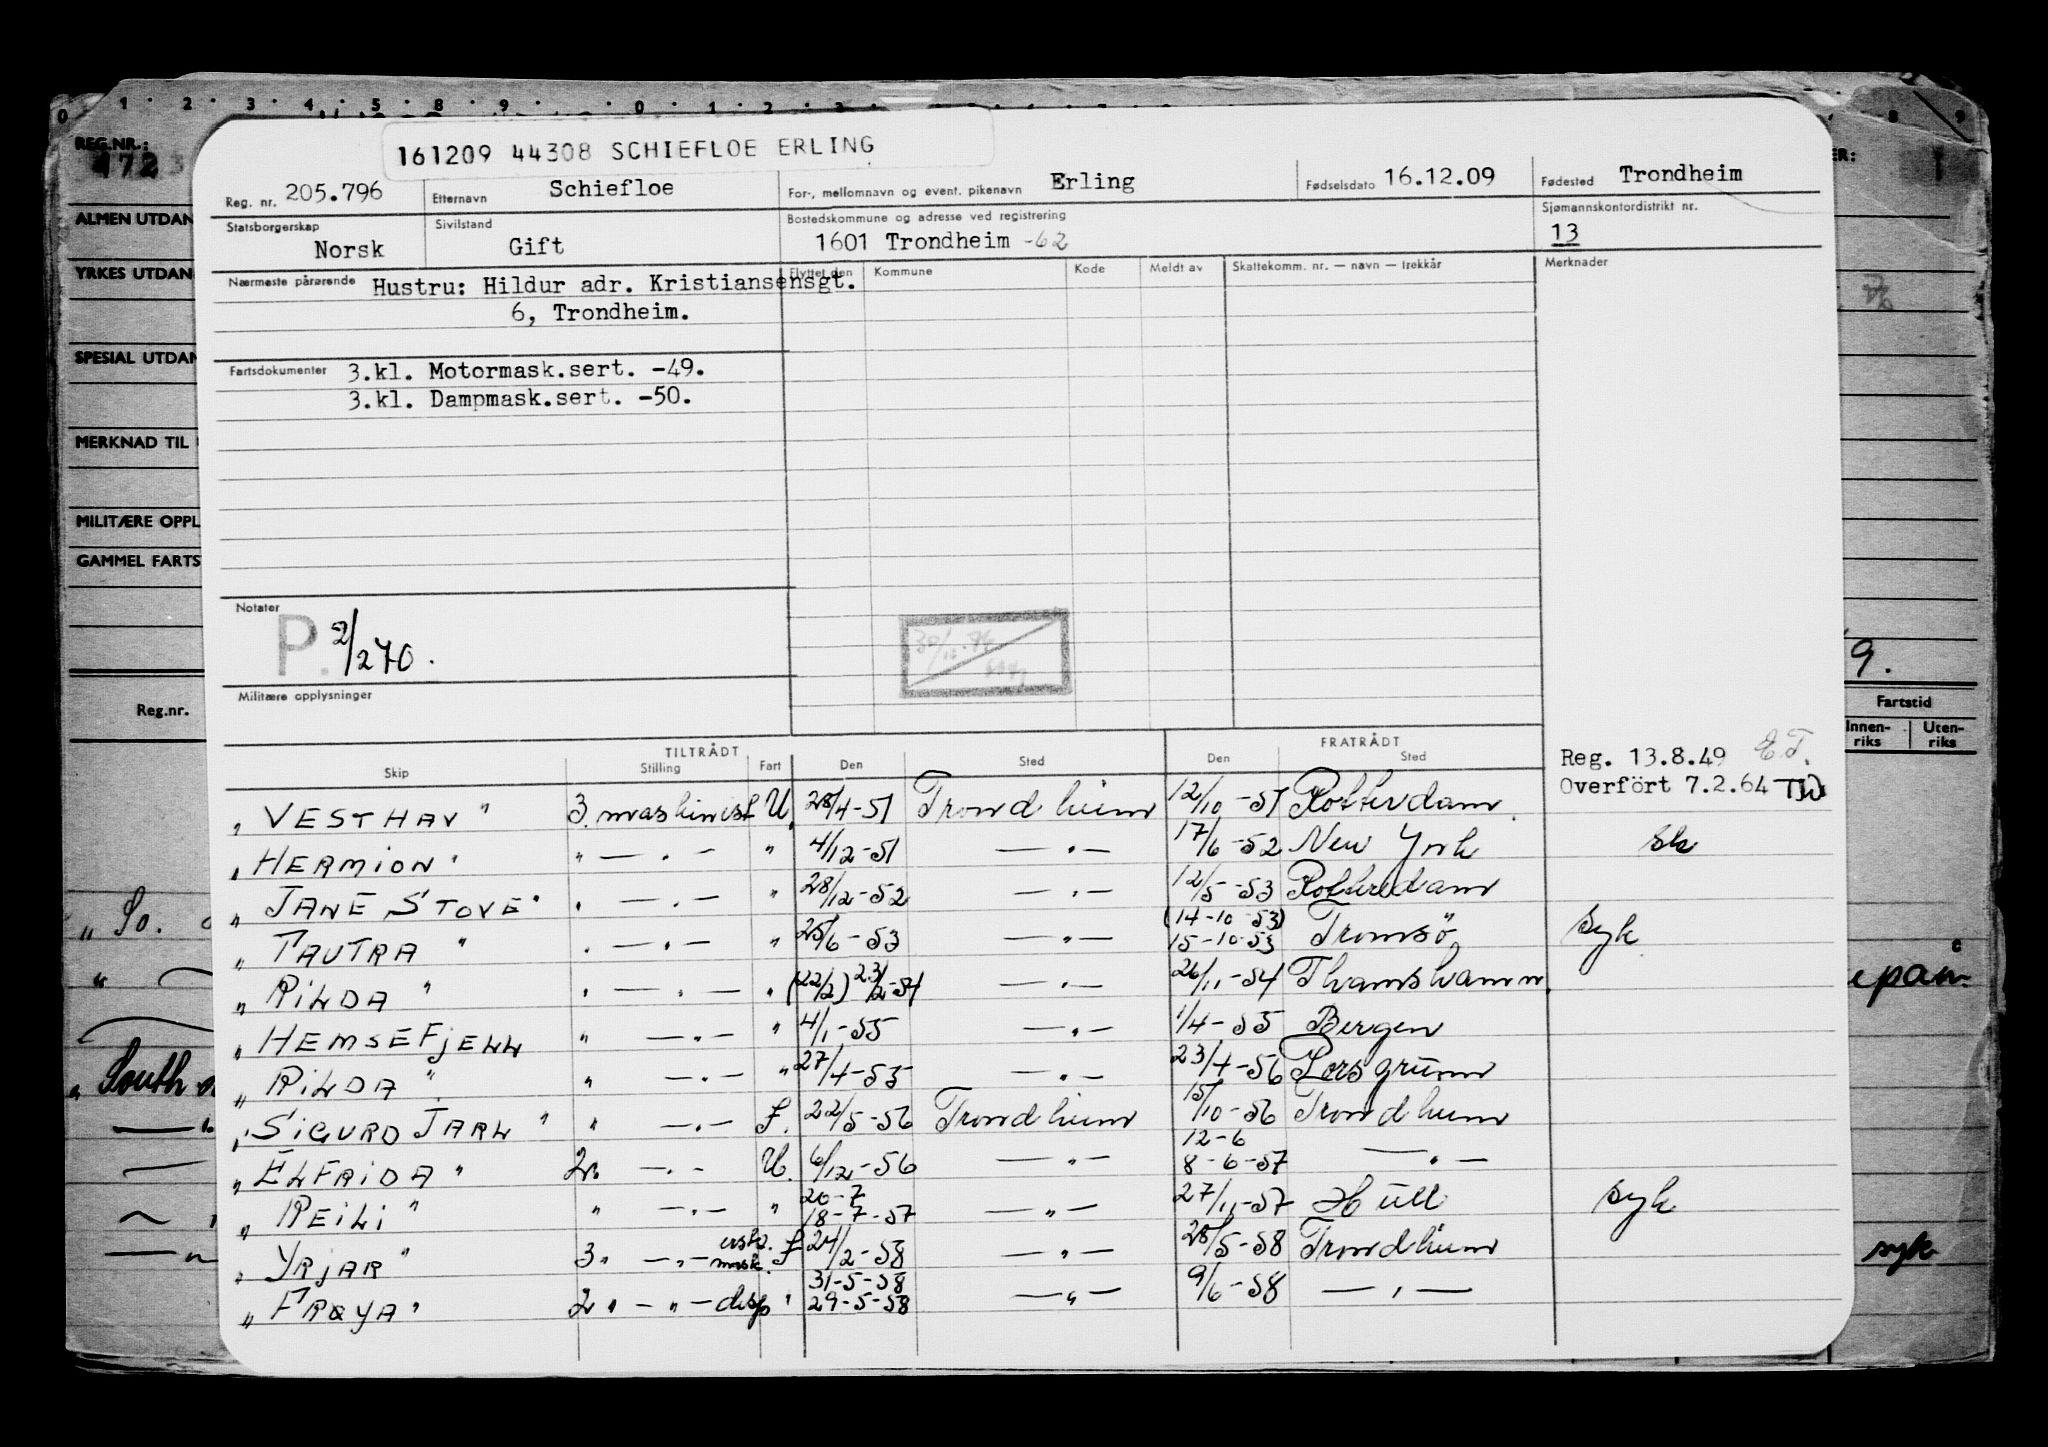 0 1 2 3 4 5 6 7 8 9 0 1 2 3 8 9
REG.NR.:
ALMEN UTDAN
YRKES UTDAN
SPESIAL UTDAN
MERKNAD TIL
MILITÆRE OPPL
GAMMEL FARTS
Reg.nr.
„ So.
South
ER: I
9.
Fartstid
Innen-riks Uten-riks
syk
161209 44308 SCHIEFLOE ERLING
Reg. nr. 205.796 Etternavn Schiefloe For-, mellomnavn og event. pikenavn Erling Fødselsdato 16.12.09 Fødested Trondheim
Statsborgerskap Norsk Sivilstand Gift Bostedskommune og adresse ved registrering 1601 Trondheim -62 Sjømannskontordistrikt nr. 13
Nærmeste pårørende Hustru: Hildur adr. Kristiansensgt.
6, Trondheim.
Flyttet den Kommune Kode Meldt av Skattekomm. nr. — navn — trekkår Merknader
Fartsdokumenter 3.kl. Motormask.sert. -49.
3.kl. Dampmask.sert. -50.
Notater
P. 2/270.
Militære opplysninger
Reg. 13.8.49 E.T.
Overført 7.2.64 TW
TILTRÅDT FRATRÅDT
Skip Stilling Fart Den Sted Den Sted
„ VESTHAV " 3. maskinist U. 28/4-51 Trondheim 12/10-51 Rotterdam.
„ HERMION " " — . — " 4/12-51 — " — 17/6-52 New York sk
„ JANE STOVE " " — . — " 28/12-52 — " — 12/5-53 Rotterdam
„ TAUTRA " " — . — " 25/6-53 — " — (14-10-53) 15-10-53 Tromsö syk
„ RILDA " " — . — " (22/2) 23/2-54 — " — 26/11-54 Thamshamn.
„ HEMSEFJELL " — . — " 4/1-55 — " — 1/4-55 Bergen
„ RILDA " " — . — " 27/4-55 — " — 23/4-56 Porsgrunn
„ SIGURD JARL " " — . — I. 22/5-56 Trondheim 15/10-56 Trondheim
„ ELFRIDA " 2. — . — U. 6/12-56 — " — 12-6 8-6-57 — " —
„ REILI " " — . — " 20-7 18-7-57 — " — 27/11-57 Hull syk
„ YRJAR " 3. — " — mask. I 24/2-58 — " — 28/5-58 Trondheim
„ FRØYA " 2. — " — disp " 31-5-58 29-5-58 — " — 9/6-58 — " —